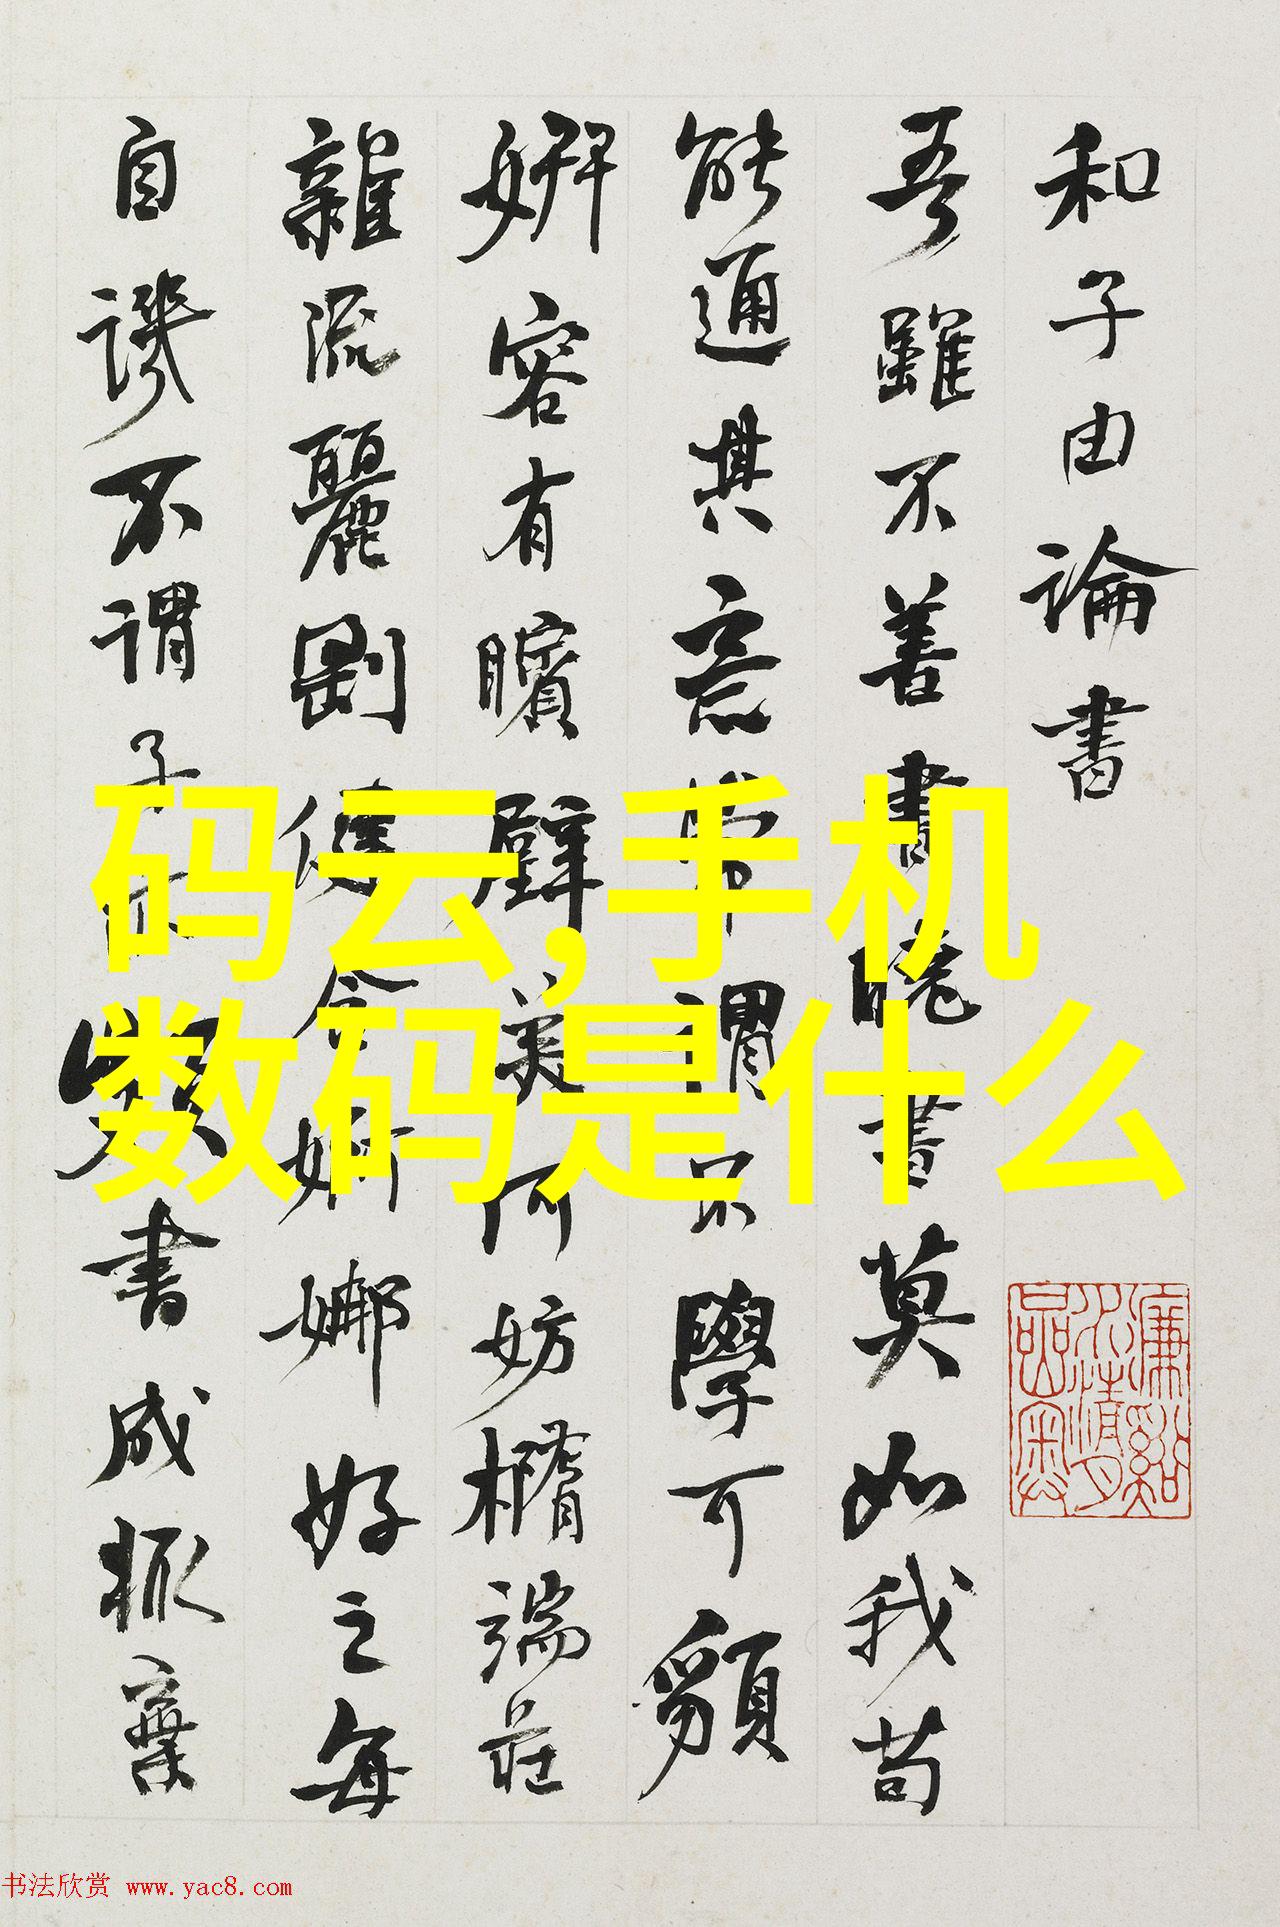 和子由論書
吾雖不善書曉書莫如我苟
能通其意常謂不學可䫉
妍容有矉璧美何妨橢端莊
雜流麗剛健含婀娜好之每
自譏不謂子亦頗書成輒棄
码云,手机
数码是什么
书法欣赏 www.yac8.com